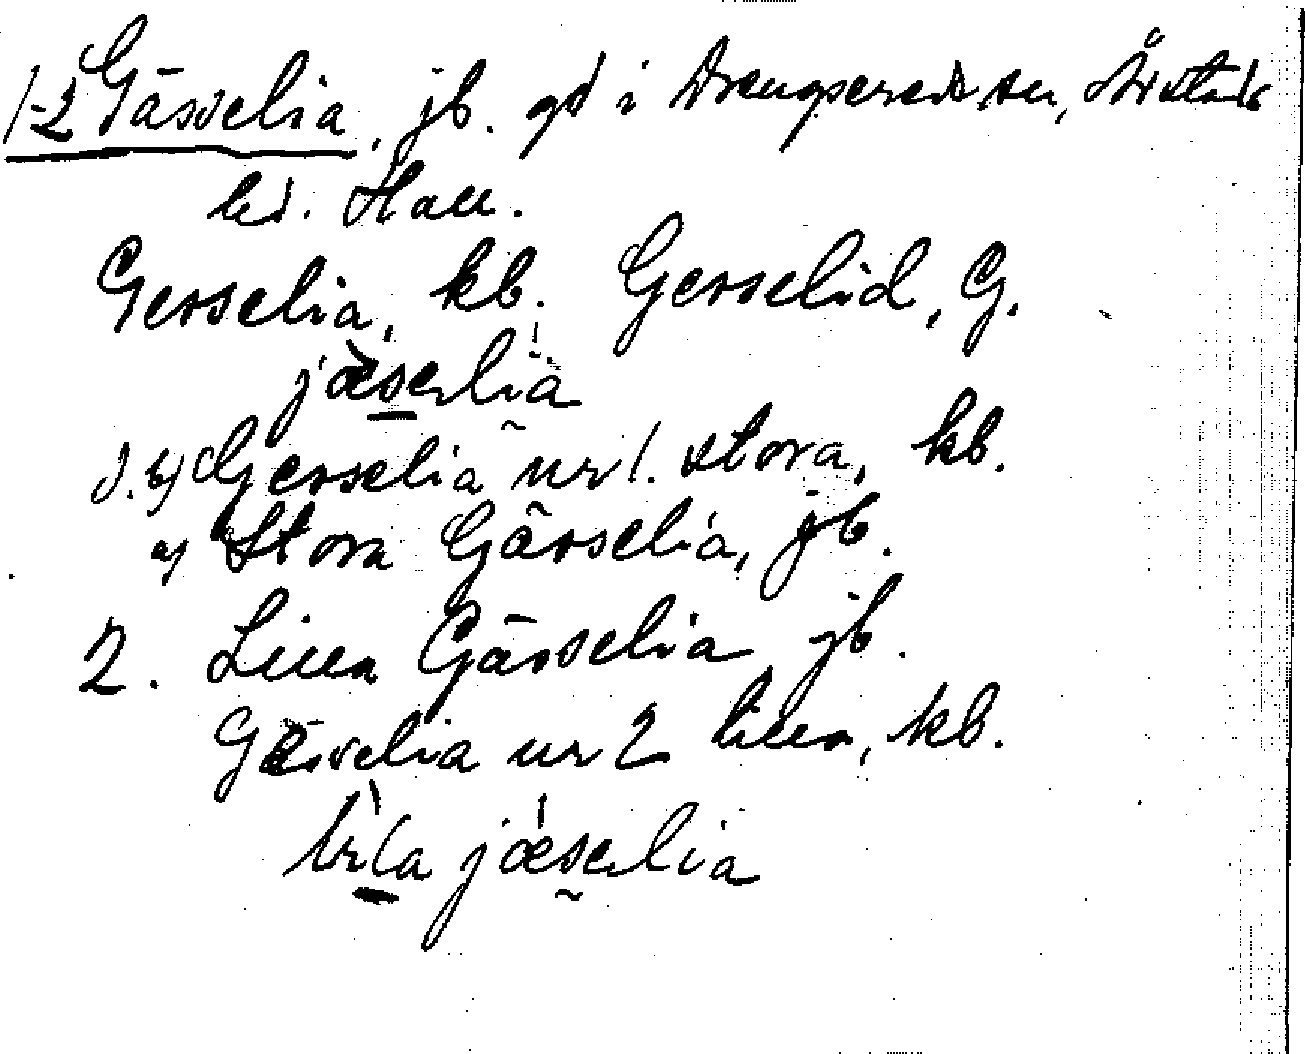 1-2 Gässelia, jb. gd i Drengsereds sn, Årstads
hd. Hall.
Gesselia, kb. Gesselid, G.
jæselia
1. b) Gesselia nr 1. stora, kb.
a) Stora Gässelia, jb.
2. Lilla Gässelia jb.
Gässelia nr 2 lilla, kb.
jæselia